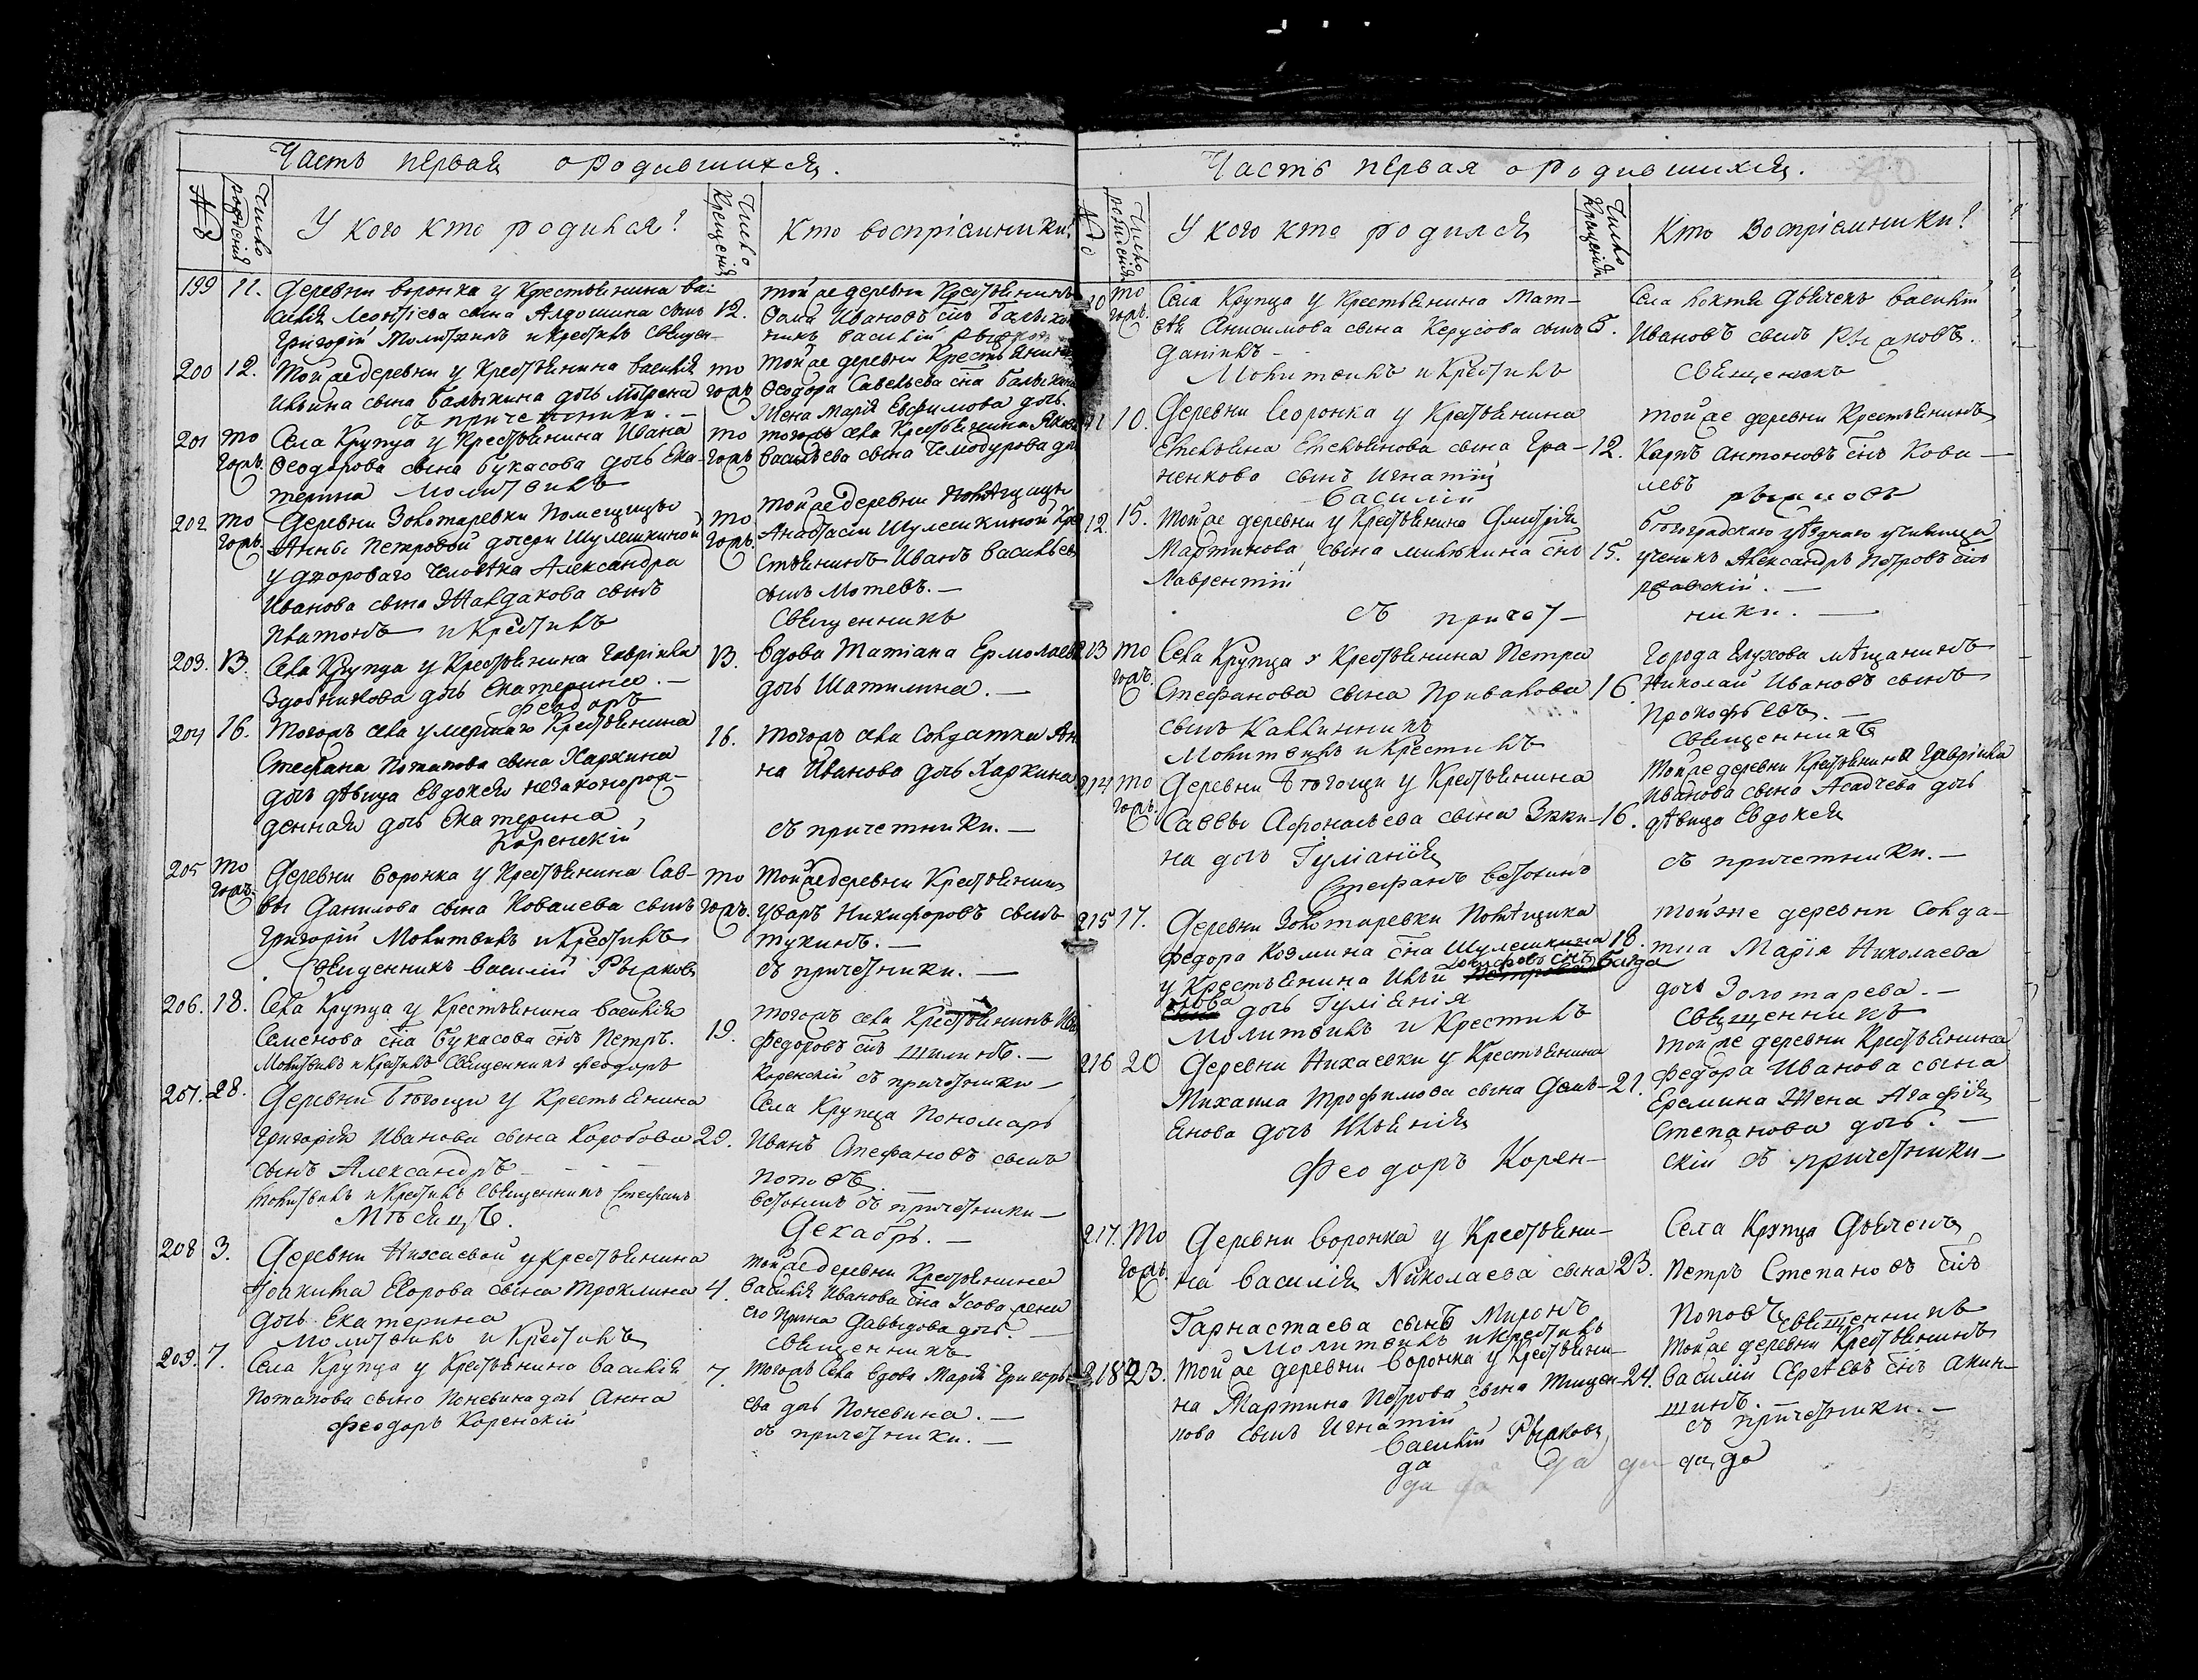 Часть первая о родившихся.
№
Число рождения
У кого кто родился?
Число крещения
Кто восприемники?
199 11. Деревни Воронка у крестьянина Ва-
силия Леонтиева сына Алдошина сынъ 12.
Григорий Молитвилъ и крестилъ священ-
той же деревни крестьянинъ
Фома Ивановъ снъ
никъ Василий
200 12. Той же деревни у крестьянина Василия то
Ильина сына Балыкина дочь Матрена гожъ
съ причетники. —
той же деревни крестьянина
Феодора Савельева сна
жена Мария Евфимова дочь.
201 то Села Крупца у крестьянина Ивана то
гожъ. Феодорова сына Букасова дочь Ека- гожъ
терина Молитвилъ
тогожъ села крестьянина
Васильева сына Чемодурова
202 то Деревни Золотаревки помещицы то
гожъ. Анны Петровой дочери Шулешкиной гожъ.
у дворового человѣка Александра
Иванова сына Жалдакова сынъ
Платонъ и крестилъ
той же деревни помѣщицы
Анастасии Шулешкиной кре
стьянинъ Иванъ Васильевъ
сынъ Мотевъ. —
Священникъ
203. 13. Села Крупца у крестьянина Гаврiила 13.
Здобникова дочь Екатерина. —
Феодоръ
вдова Татиана Ермолаева
дочь Шатилина. —
204 16. Тогожъ села умершаго крестьянина 16.
Стефана Потапова сына Харкина
дочь дѣвица Евдокея незаконорож-
денная дочь Екатерина
Коренскiй
Тогожъ села солдатка Ан
на Иванова дочь Харкина
съ причетники. —
205 то Деревни Воронка у крестьянина Сав- то
гожъ. вы Данилова сына Ковалева сынъ гожъ.
Григорiй Молитвилъ и крестилъ
Священникъ Василiй Рыжковъ
Той же деревни крестьянинъ
Уваръ Никифоровъ сынъ
Тукинъ. —
съ причетники. —
206. 18. Села Крупца у крестьянина Василия
Семенова сна Букасова снъ Петръ. 19.
Молитвилъ и крестилъ Священникъ Феодоръ
тогожъ села крестьянинъ
Федоровъ снъ Шилинъ. —
Коренскiй съ причетники —
207. 28. Деревни у крестьянина
Григорiя Иванова сына Коробова 29.
сынъ Александръ
Молитвилъ и крестилъ Священникъ Стефанъ
Села Крупца пономарь
Иванъ Стефановъ сынъ
Поповъ.
съ причетники —
Мѣсяцъ. Декабрь. —
208 3. Деревни Нихаевой у крестьянина
Iоакима Егорова сына 4.
дочь Екатерина
Молитвилъ и крестилъ
той же деревни крестьянина
Василия Иванова сна Усова жена
его Ирина Давыдова дочь. —
Священникъ
209. 7. Села Крупца у крестьянина Василия 7.
Потапова сына Поневина дочь Анна
Феодоръ Коренскiй
тогожъ села вдова Марiя Григорь
ева дочь Поневина. —
съ причетники. —
Часть первая о родившихся.
№
Число рождения
У кого кто родился
Число крещения
Кто Вострiемники?
10 то Села Крупца у крестьянина Мат-
гожъ. вѣя Анисимова сына Керусова сынъ 5.
Данiилъ —
Молитвилъ и крестилъ
Села дьячекъ Василiй
Ивановъ сынъ
Священникъ
11 10. Деревни Воронка у крестьянина
12.
ненкова сынъ Игнатiй
Василий
той же деревни крестьянинъ
Карпъ Антоновъ снъ Кова-
левъ
Рыжковъ
12. 15. Той же деревни у крестьянина Дмитрiя
Мартинова сына Милюкина снъ 15.
Лаврентiй
съ причет-
уѣзднаго училища
ученикъ Александръ Петровъ снъ
ники. —
213 то Села Крупца у крестьянина Петра
гожъ. Стефанова сына Привалова 16.
сынъ Каллинникъ
Молитвилъ и крестилъ
Города Глухова мѣщанинъ
Николай Ивановъ сынъ
Прокофьевъ. —
Священникъ
214 то Деревни у крестьянина
гожъ. Саввы Афонасьева сына Зики- 16.
на дочь Гулiанiя
Стефанъ
Той же деревни крестьянина Гаврiила
Иванова сына Асадчева дочь
дѣвица Евдокея
съ причетники. —
215 17. Деревни Золотаревки помѣщика
Федора Козмина сна Шулешкина 18.
у крестьянина Ильи
дочь Гулiянiя
Молитвилъ и крестилъ
той же деревни солда-
тка Марiя Николаева
дочь Золотарева. —
Священникъ
216 20 Деревни Нихаевки у крестьянина
Михаила Трофимова сына Демь- 21.
янова дочь
Феодоръ Корен-
той же деревни крестьянина
Федора Иванова сына
Еремина жена Агафiя
Степанова дочь. —
скiй съ причетники —
217. то Деревни Воронка у крестьяни-
гожъ. на Василiя Николаева сына 23.
Гарнастаева сынъ Миронъ
Молитвилъ и крестилъ
Села Крупца дьячекъ
Петръ Степановъ снъ
Поповъ Священникъ
218 23. Той же деревни Воронка у крестьяни-
на Мартина Петрова сына Тищен- 24.
кова сынъ Игнатiй
Василiй Рыжковъ
Той же деревни крестьянинъ
Василiй Сергѣевъ снъ Акин-
шинъ. —
съ причетники. —
да да да да, да
да да